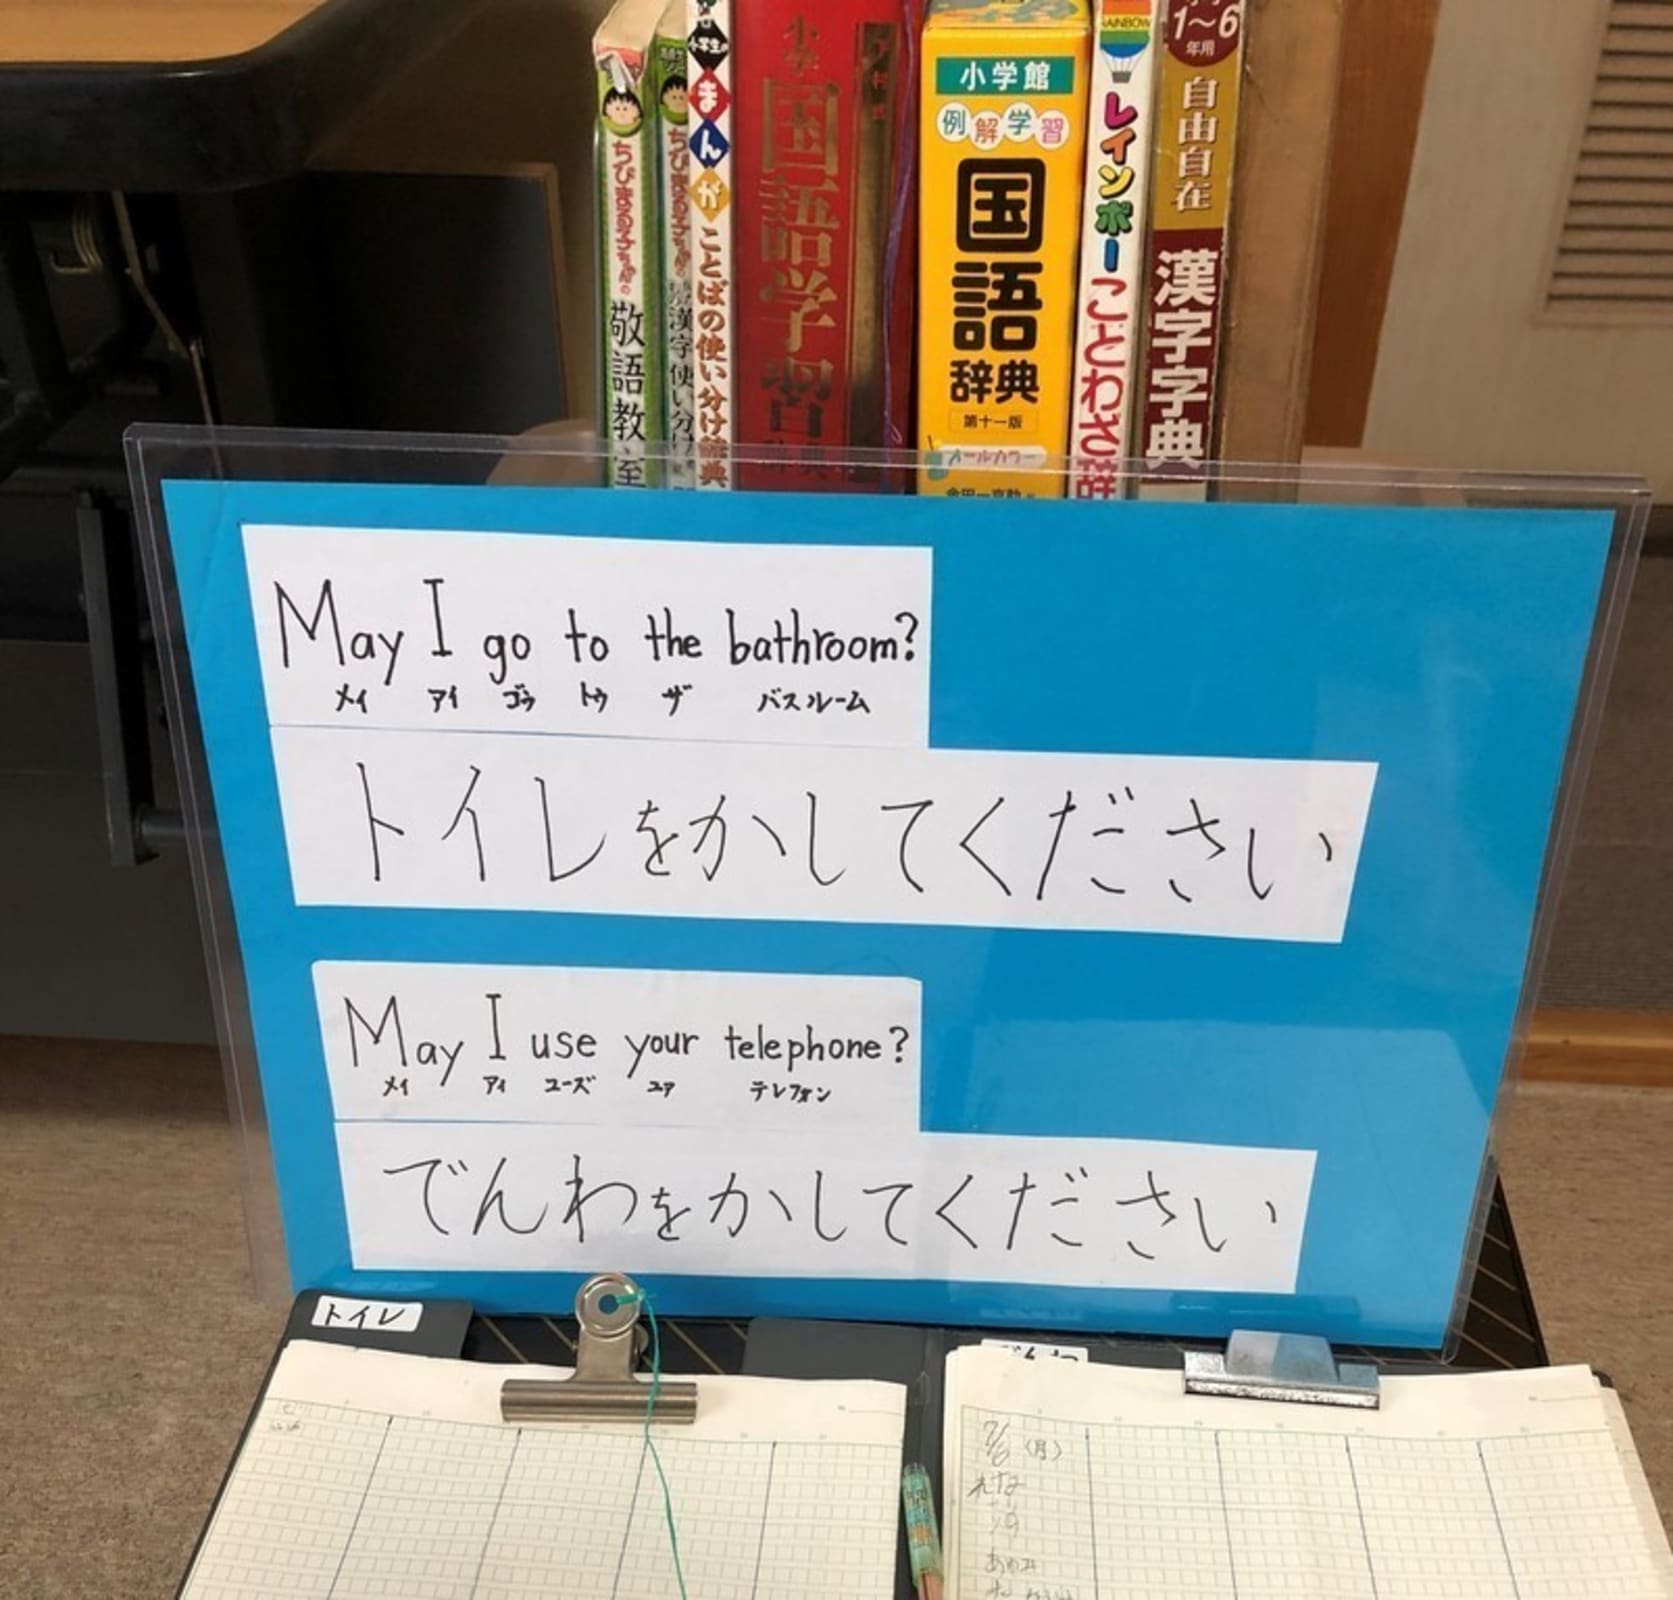 ちびまる子ちゃんの
敬語教室
ちびまる子ちゃんの
漢字使い分け
小学生の
まんが
ことばの使い分け辞典
小学
国語学習
辞典
小学館
例解学習
国語
辞典
第十一版
オールカラー
金田一京助
RAINBOW
レインボー
ことわざ辞
1〜6
年用
自由自在
漢字字典
May I go to the bathroom?
メイ アイ ゴゥ トゥ ザ バスルーム
トイレをかしてください
May I use your telephone?
メイ アイ ユーズ ユア テレフォン
でんわをかしてください
トイレ
(月)